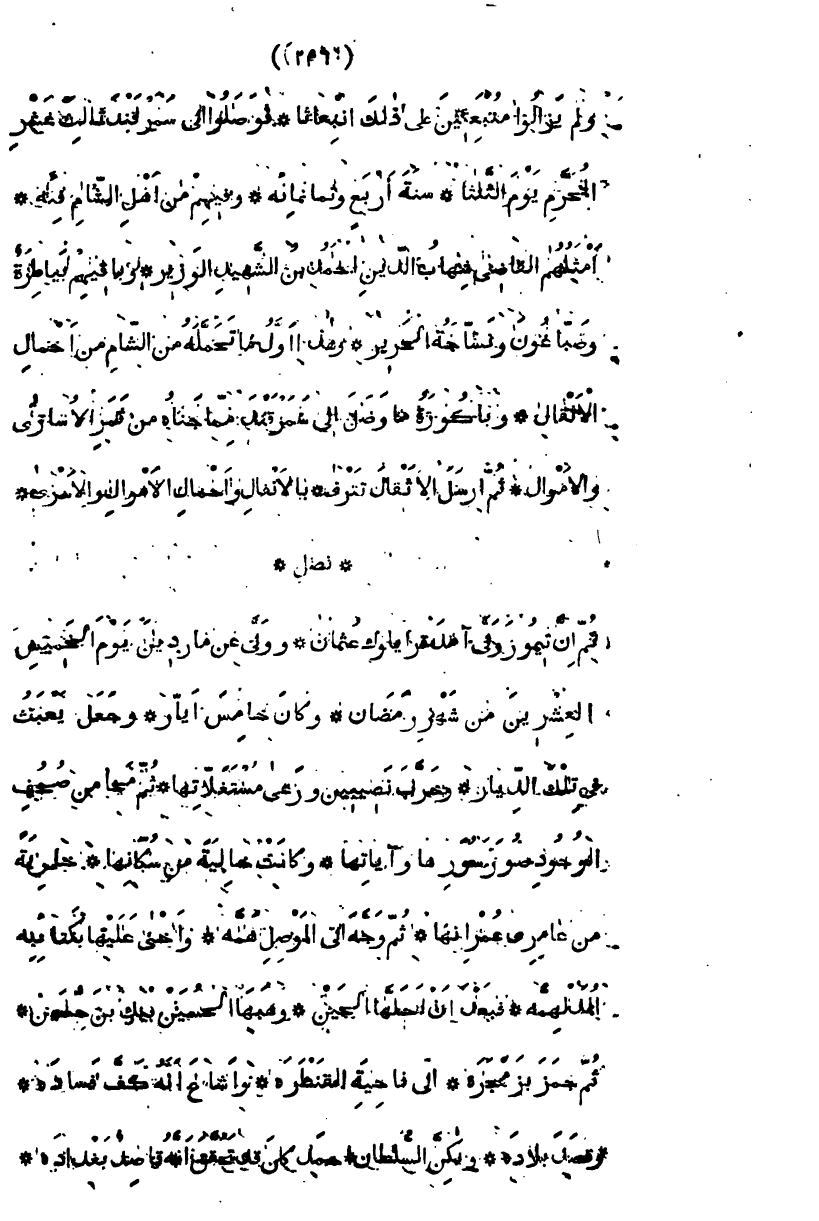 ((٢٩٦))
ولم يزالوا متبعين على ذلك انبعاثا * فوصلوا الى سمرقند ثالث عشر
المحرم يوم الثلثا * سنة أربع وثمانمائه * وفيهم من اهل الشام فئه *
أمثلهم القاضي شهاب الدين احمد بن الشهيد الوزير * وباقيهم بياطرة
وصباغون ونساجة الحرير * وهذا اول ما تحمله من الشام من احمال
الاثقال * وباكورة ما وصل الى سمرقند مما جناه من ثمر الاسارى
والاموال * ثم ارسل الاثقال تترى * بالانفال واحمال الاموال والاسرى *
* فصل *
ثم ان تيمور ولى آمد قرا يلوك عثمان * وولى عن ماردين يوم الخميس
العشرين من شهر رمضان * وكان خامس ايار * وجعل يعبث
في تلك الديار * وخرب نصيبين ورعى مستغلاتها * ثم محا من صحف
الوجود صور سورها وآياتها * وكانت خالية من سكانها * خلوية
من عامرها عمرانها * ثم وجه الى الموصل همه * واخنى عليها بكتائبه
المدلهمه * فبعد ان احلها الحين * وهبها الحسين بيك بن حسن *
ثم جمز بزمجرة * الى ناحية القنطره * واشاع انه كف فساده *
وقصد بلاده * ولكن السلطان احمد كان قد تحقق انه قاصد بغداده *